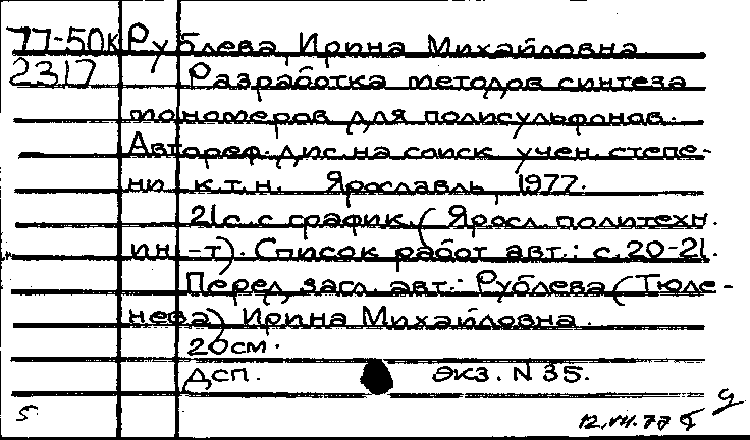 77-50к Рублева, Ирина Михайловна
2317 Разработка методов синтеза
мономеров для полисульфонов.
Автореф. дис. на соиск. учен. степе-
ни к.т.н. Ярославль, 1977.
21с. с график. (Яросл. политехн.
ин-т). Список работ авт.: с.20-21.
Перед загл. авт.: Рублева (Тюле-
нева) Ирина Михайловна.
20см.
Дсп. экз. N 35.
5 12.VII.77